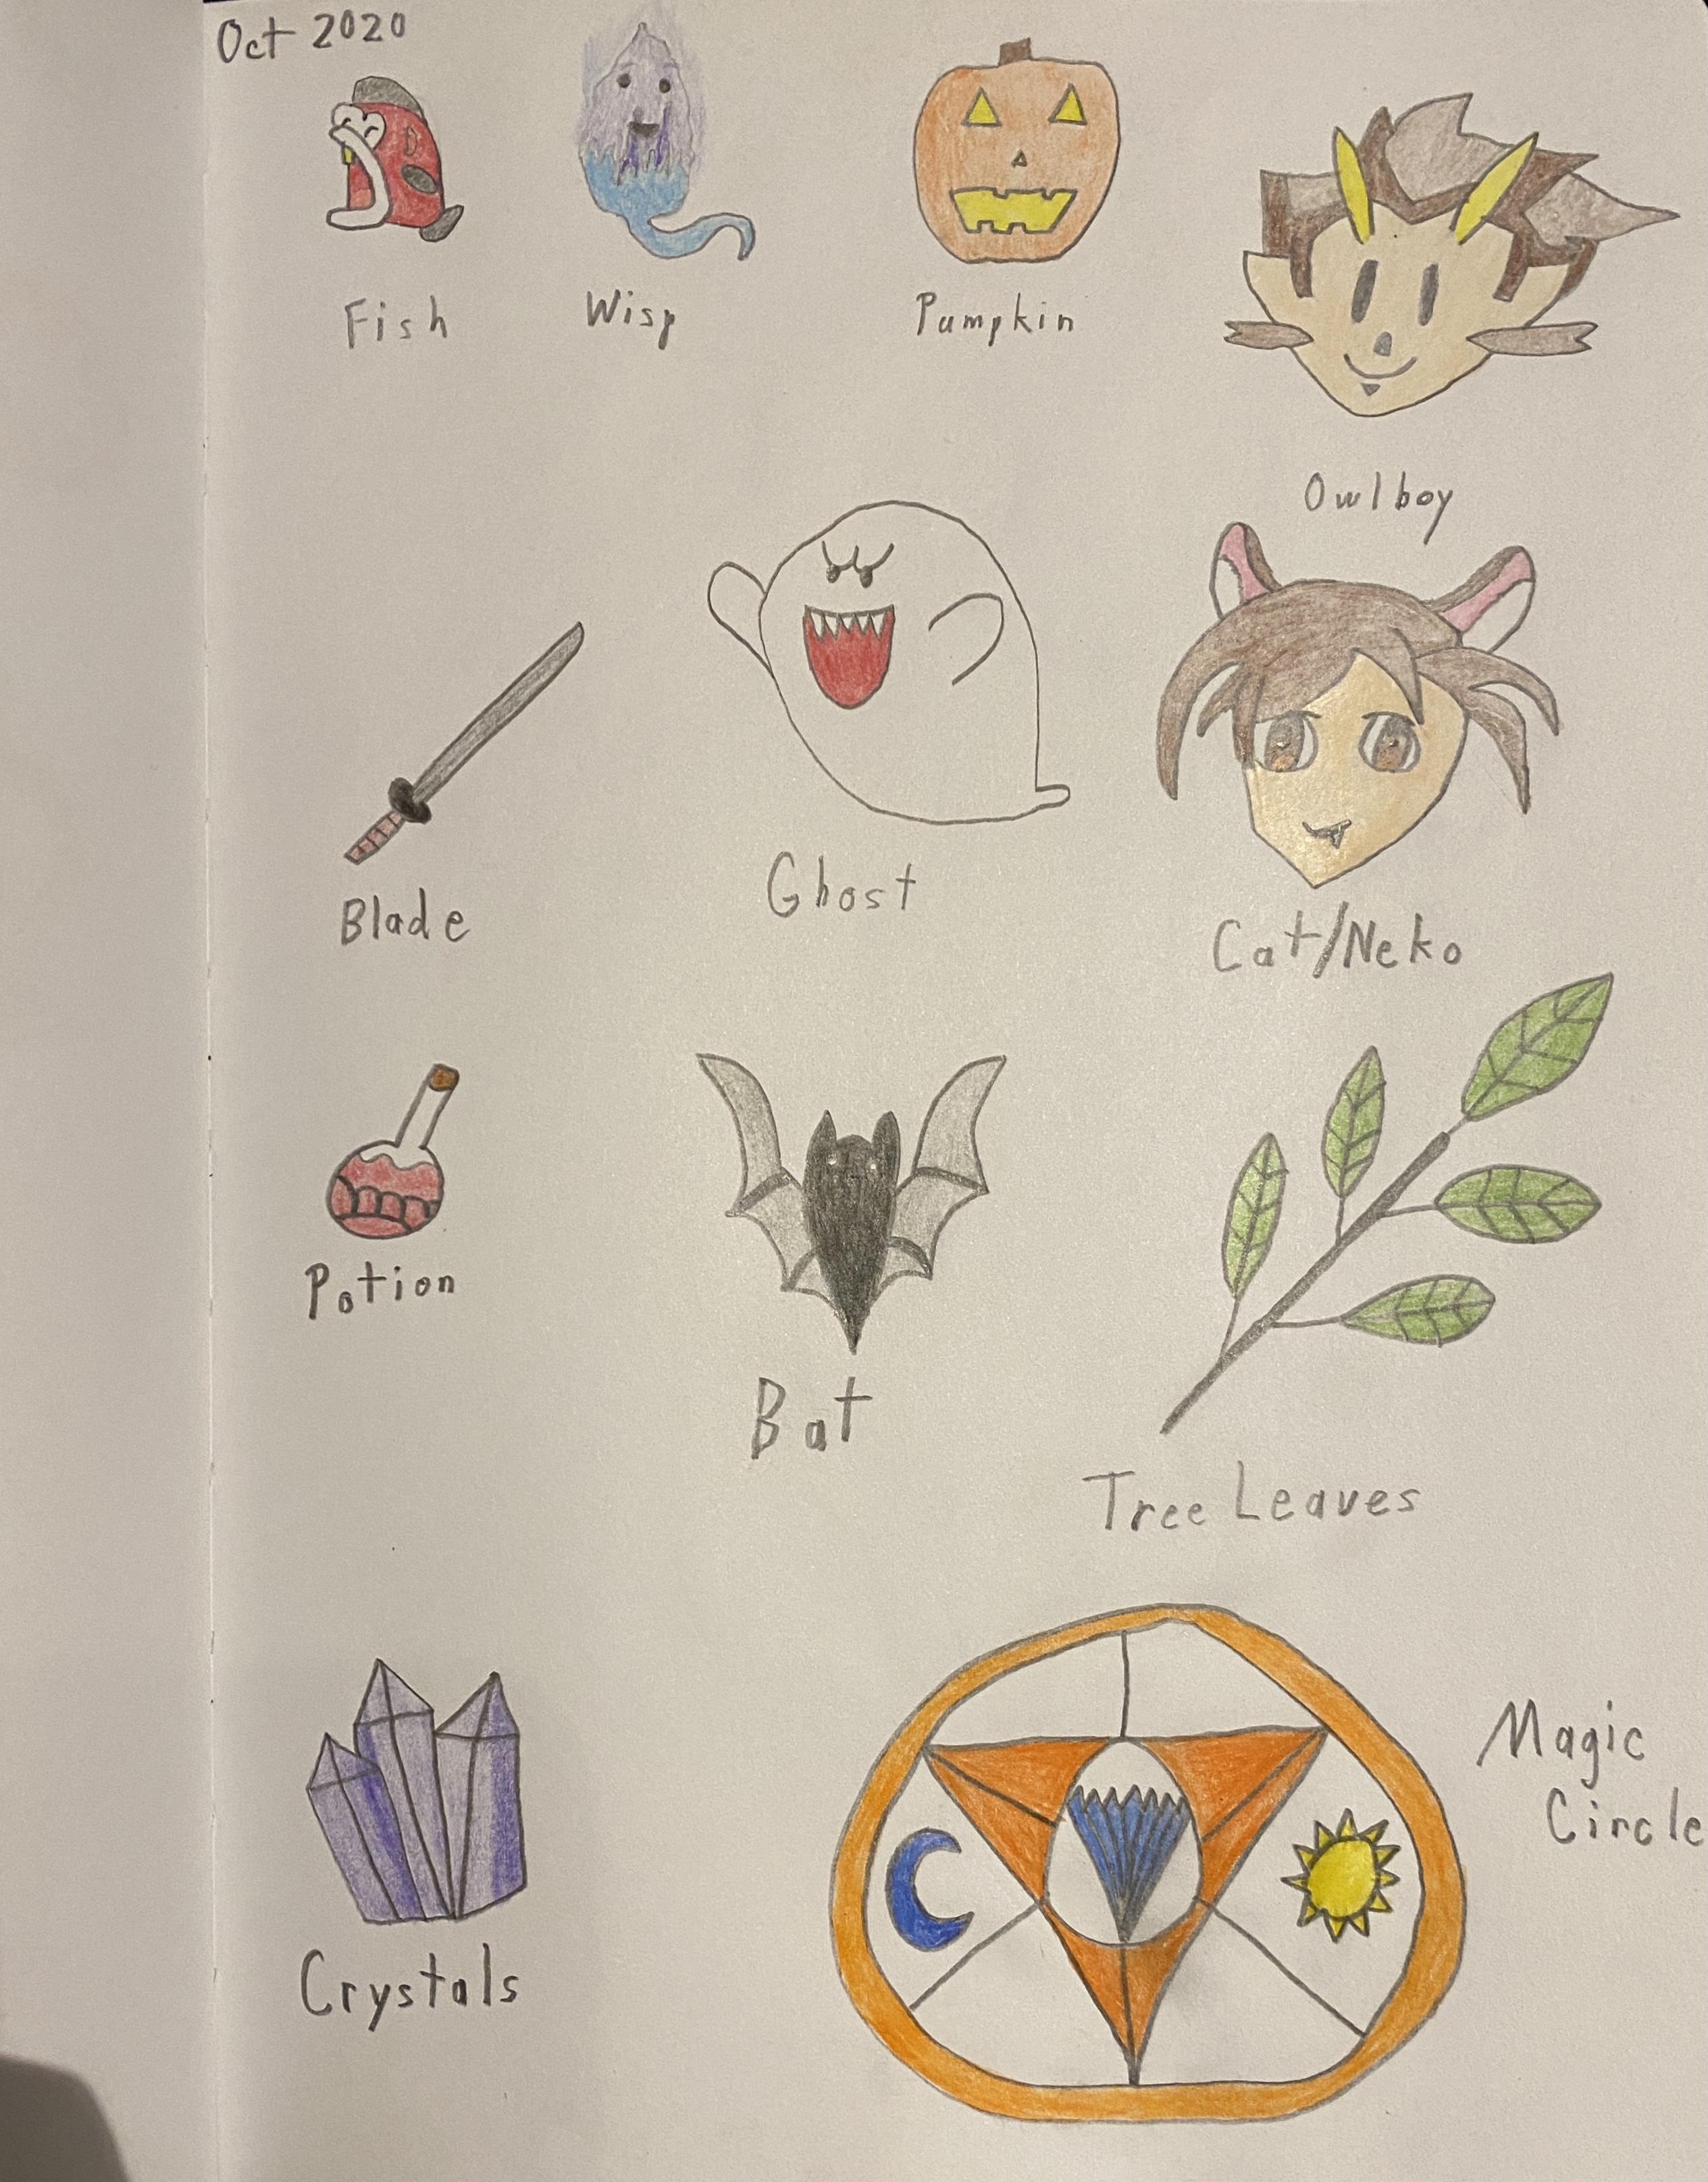 Oct 2020
Fish
Wisp
Pumpkin
Owlboy
Blade
Ghost
Cat/Neko
Potion
Bat
Tree Leaves
Crystals
Magic
Circle